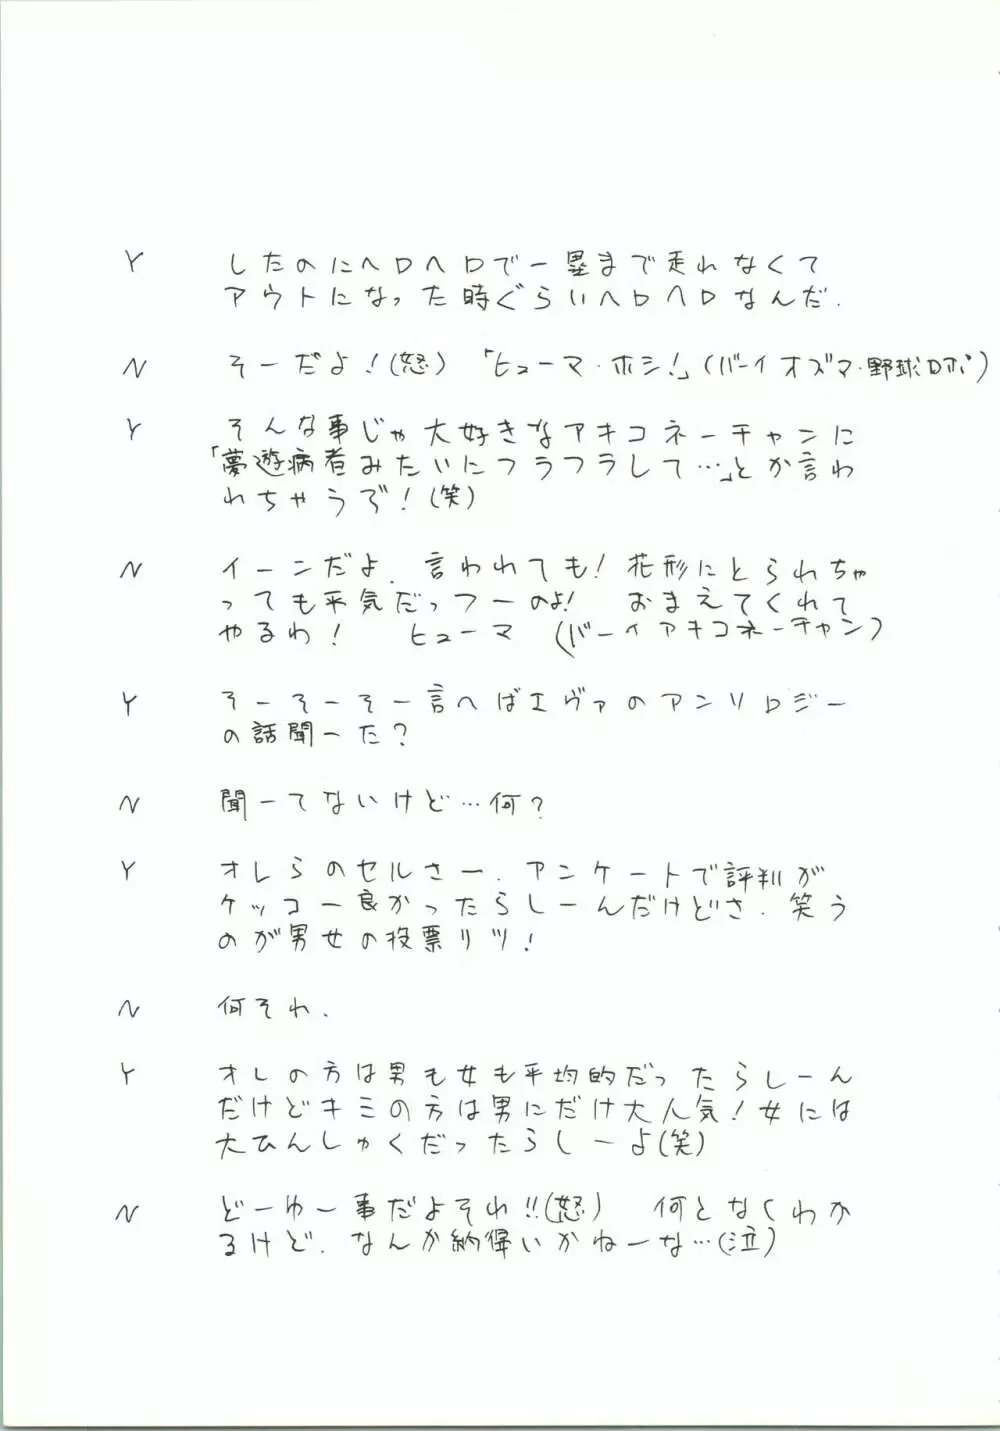 Y したのにヘロヘロで一塁まで走れなくて
アウトになった時ぐらいヘロヘロなんだ.
N そーだよ!(怒) 「ヒューマ・ホシ!」(バーイオズマ・野球ロボ)
Y そんな事じゃ大好きなアキコネーチャンに
「夢遊病者みたいにフラフラして…」とか言わ
れちゃうぞ!(笑)
N イーンだよ.言われても!花形にとられちゃ
っても平気だっつーのよ! おまえてくれて
やるわ! ヒューマ (バーイアキコネーチャン)
Y そーそーそー言へばエヴァのアンソロジー
の話聞ーた?
N 聞ーてないけど…何?
Y オレらのセルさー.アンケートで評判が
ケッコー良かったらしーんだけどさ.笑う
のが男女の投票リツ!
N 何それ.
Y オレの方は男も女も平均的だったらしーん
だけどキミの方は男にだけ大人気!女には
大ひんしゅくだったらしーよ(笑)
N どーゆー事だよそれ!!(怒) 何となくわか
るけど.なんか納得いかねーな…(泣)